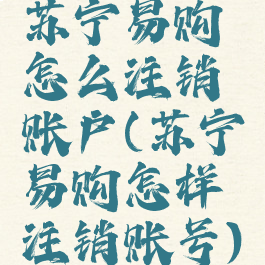 苏宁易购
怎么注销
账户(苏宁
易购怎样
注销账号)